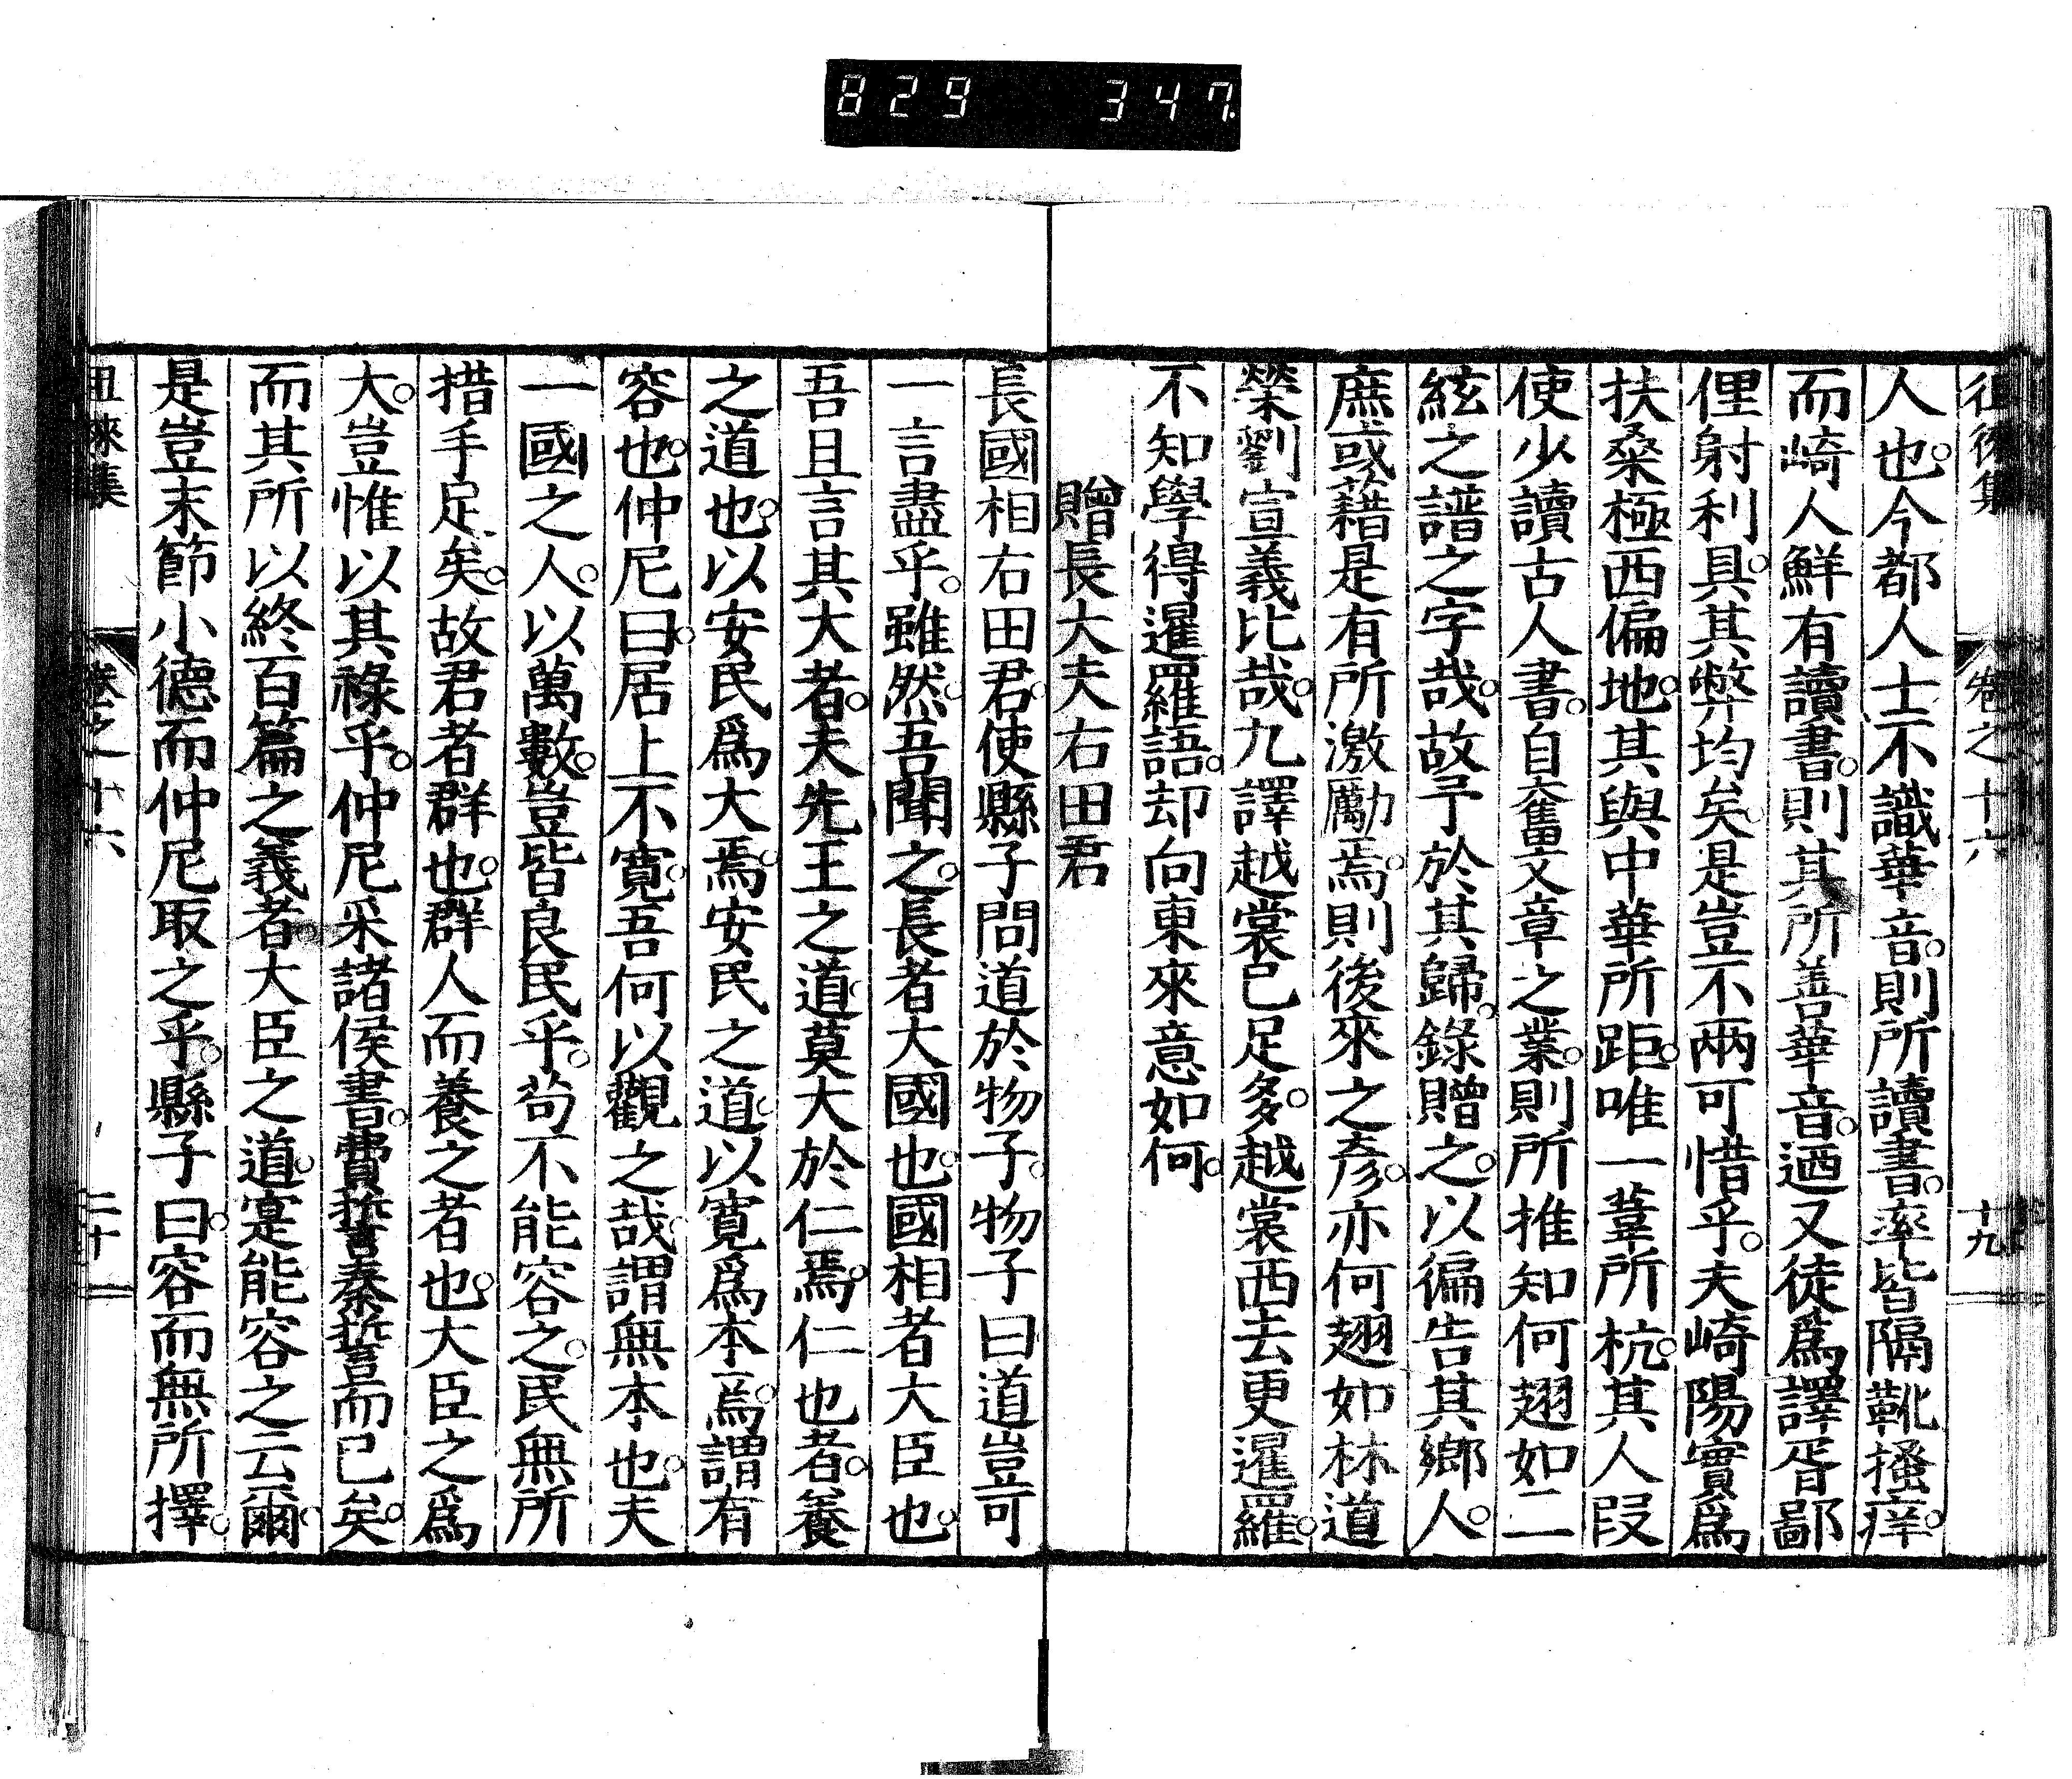 829 347
徂徠集 卷之十六 十九
人也。今都人士不識華音。則所讀書。率皆隔靴搔痒。
而崎人鮮有讀書。則其所善華音。迺又徒爲譯胥鄙
俚射利具。其弊均矣。是豈不兩可惜乎。夫崎陽實爲
扶桑極西偏地。其與中華所距。唯一葦所杭。其人叚
使少讀古人書。自奮文章之業。則所推知何翅如二
絃之譜之字哉。故予於其歸。錄贈之。以徧告其鄉人。
庶或藉是有所激勵焉。則後來之彥。亦何翅如林道
榮劉宣義比哉。九譯越裳已足多。越裳西去更暹羅。
不知學得暹羅語。却向東來意如何。
贈長大夫右田君
長國相右田君。使縣子問道於物子。物子曰道豈可
一言盡乎。雖然。吾聞之。長者大國也。國相者大臣也。
吾且言其大者。夫先王之道。莫大於仁焉。仁也者。養
之道也。以安民爲大焉。安民之道。以寬爲本焉。謂有
容也。仲尼曰。居上不寬。吾何以觀之哉。謂無本也。夫
一國之人。以萬數。豈皆良民乎。苟不能容之。民無所
措手足矣。故君者群也。群人而養之者也。大臣之爲
大。豈惟以其祿乎。仲尼采諸侯書。費誓秦誓而已矣。
而其所以終百篇之義者。大臣之道。寔能容之云爾。
是豈末節小德而仲尼取之乎。縣子曰。容而無所擇。
徂徠集 卷之十六 二十